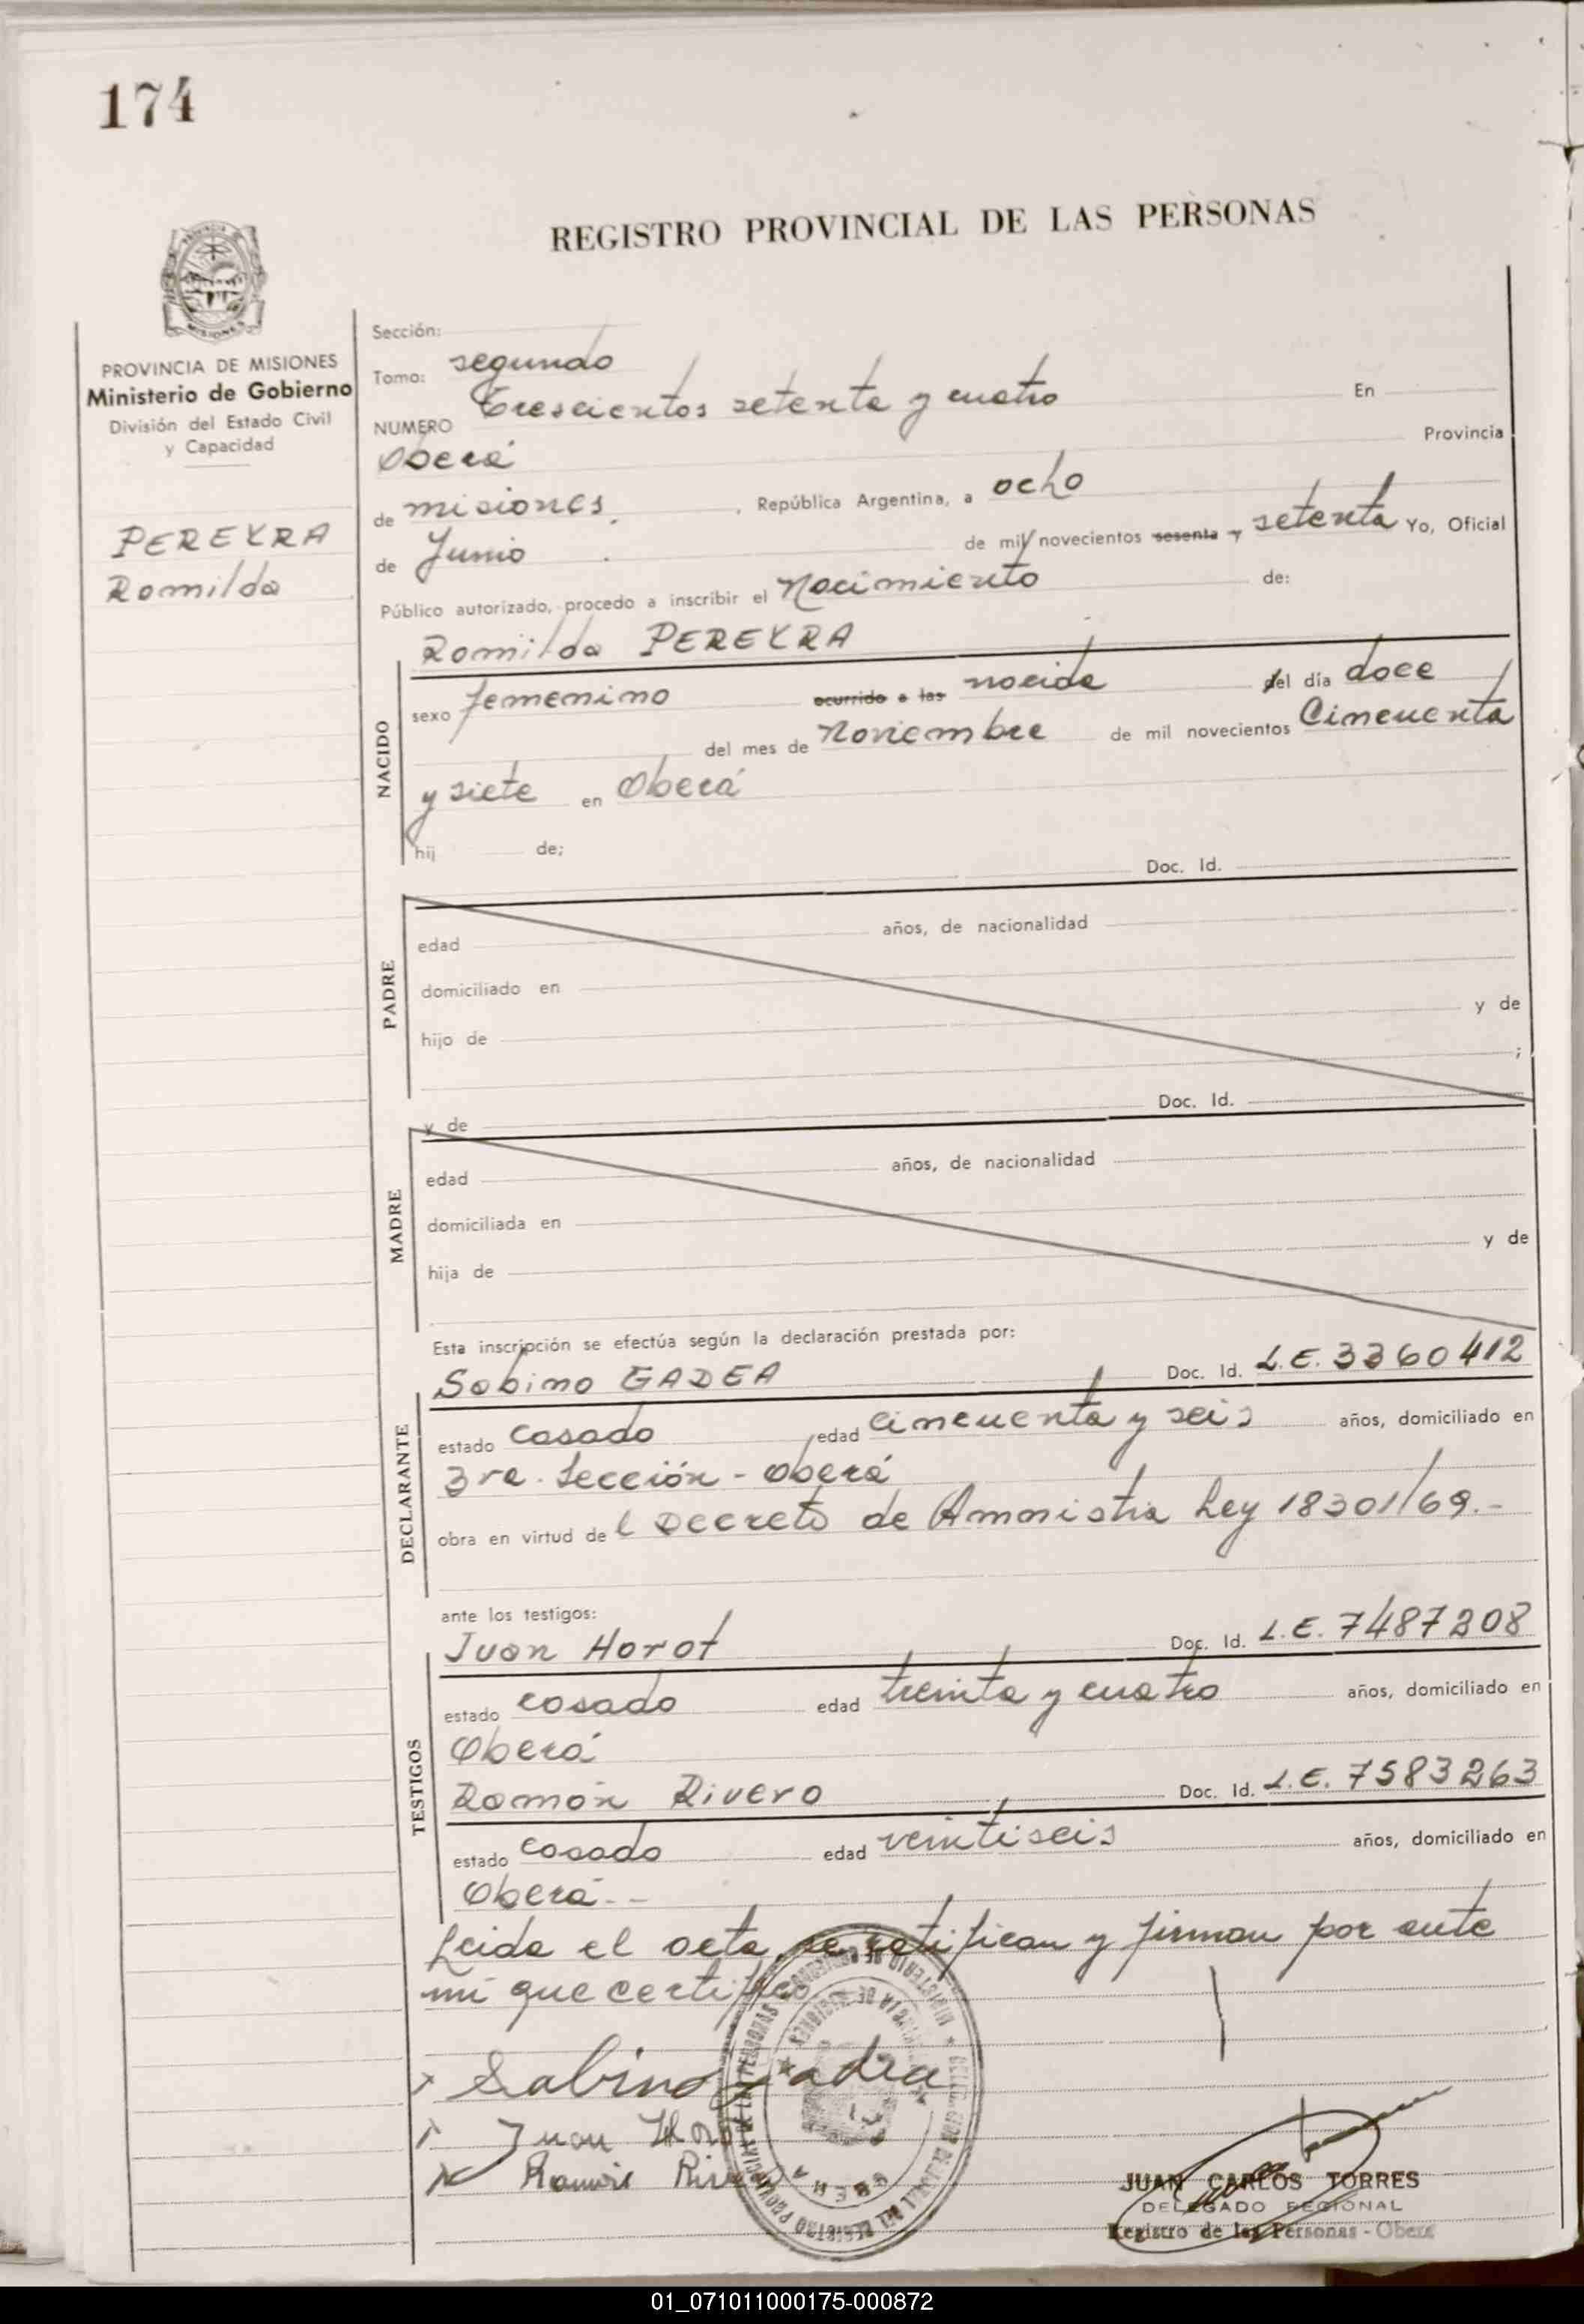 174
REGISTRO PROVINCIAL DE LAS PERSONAS
PROVINCIA DE MISIONES
Ministerio de Gobierno
División del Estado Civil
y Capacidad
PEREYRA
Romilda
Sección:
Tomo: segundo
NUMERO Trescientos setenta y cuatro En
Oberá Provincia
de misiones, República Argentina, a ocho
de Junio de mil novecientos sesenta y setenta Yo, Oficial
Público autorizado, procedo a inscribir el Nacimiento de:
Romilda PEREYRA
NACIDO
sexo femenino ocurrido a las nacida del día doce
del mes de Noviembre de mil novecientos Cincuenta
y siete en Oberá
hij de;
Doc. Id.
PADRE
edad años, de nacionalidad
domiciliado en
hijo de y de
;
y de Doc. Id.
MADRE
edad años, de nacionalidad
domiciliada en
hija de y de
Esta inscripción se efectúa según la declaración prestada por:
Sabino GADEA Doc. Id. L.E. 3360412
DECLARANTE
estado casado edad cincuenta y seis años, domiciliado en
3ra. Sección - Oberá
obra en virtud de l Decreto de Amnistia Ley 18301/69.-
ante los testigos:
Juan Horot Doc. Id. L.E. 7487208
TESTIGOS
estado casado edad treinta y cuatro años, domiciliado en
Oberá
Ramón Rivero Doc. Id. L.E. 7583263
estado casado edad veintiseis años, domiciliado en
Oberá.--
Leida el acta, se ratifican y firman por ante
mi que certifico
Sabino Gadea
Juan
Ramón
JUAN CARLOS TORRES
DELEGADO REGIONAL
Registro de las Personas - Oberá
01_071011000175-000872